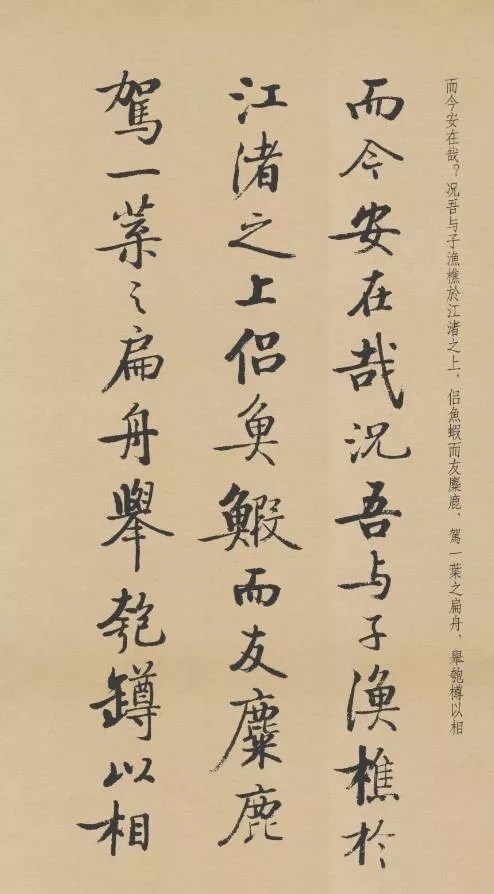 而今安在哉？况吾与子漁樵於江渚之上，侣魚蝦而友麋鹿，駕一葉之扁舟，舉匏樽以相
而今安在哉況吾与子漁樵於
江渚之上侣魚鰕而友麋鹿
駕一葉之扁舟舉匏罇以相